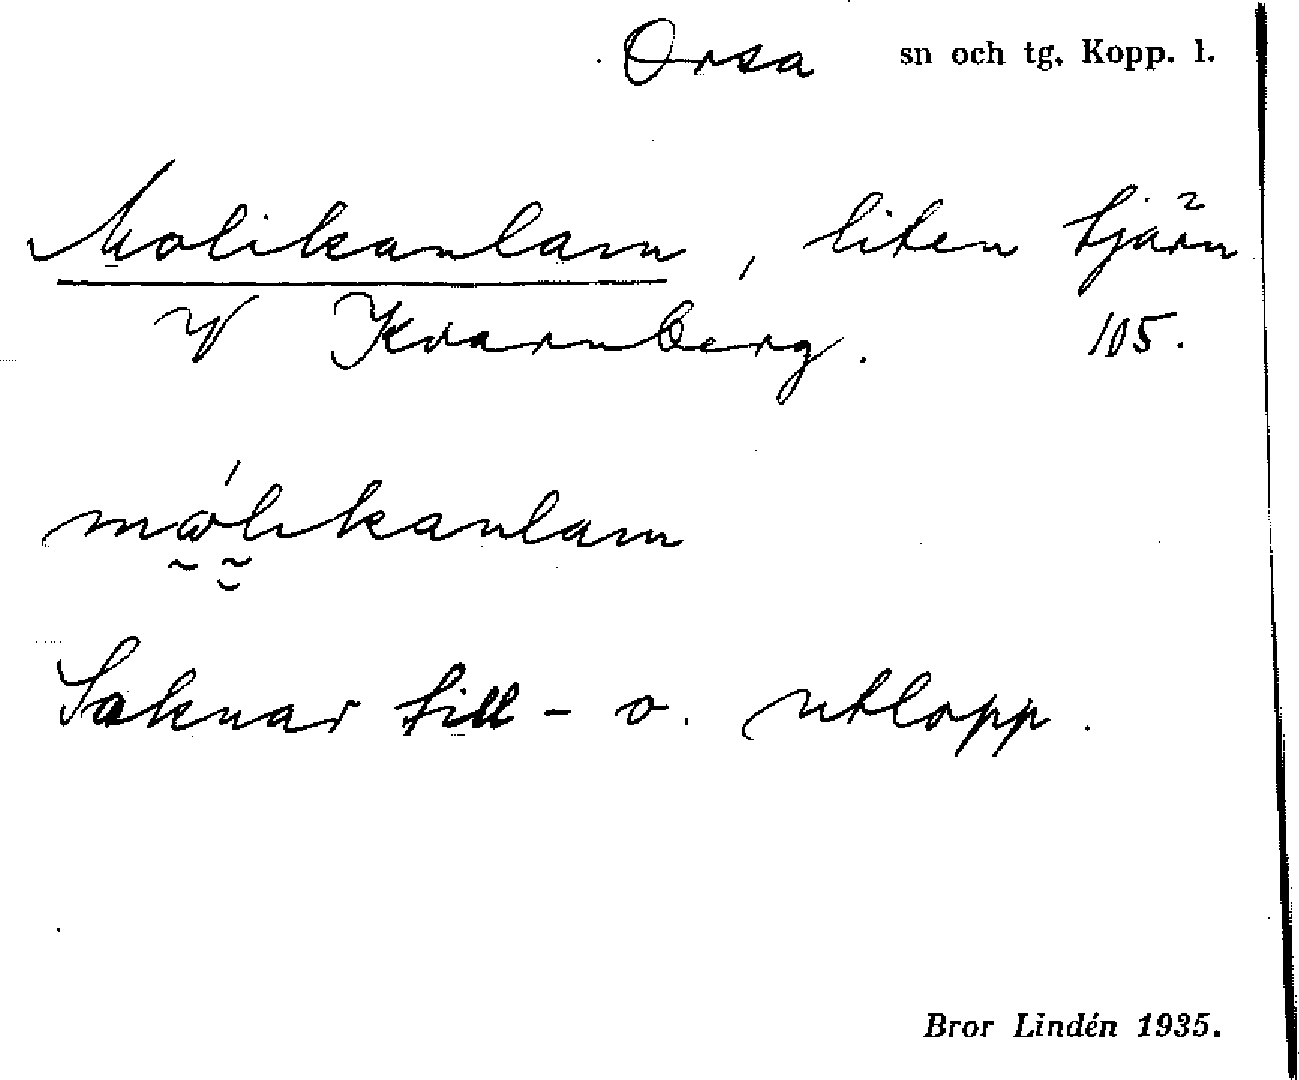 Orsa sn och tg. Kopp. l.
Molikanlam, liten tjärn
V Kvarnberg. 105.
Saknar till- o. utlopp.
Bror Lindén 1935.